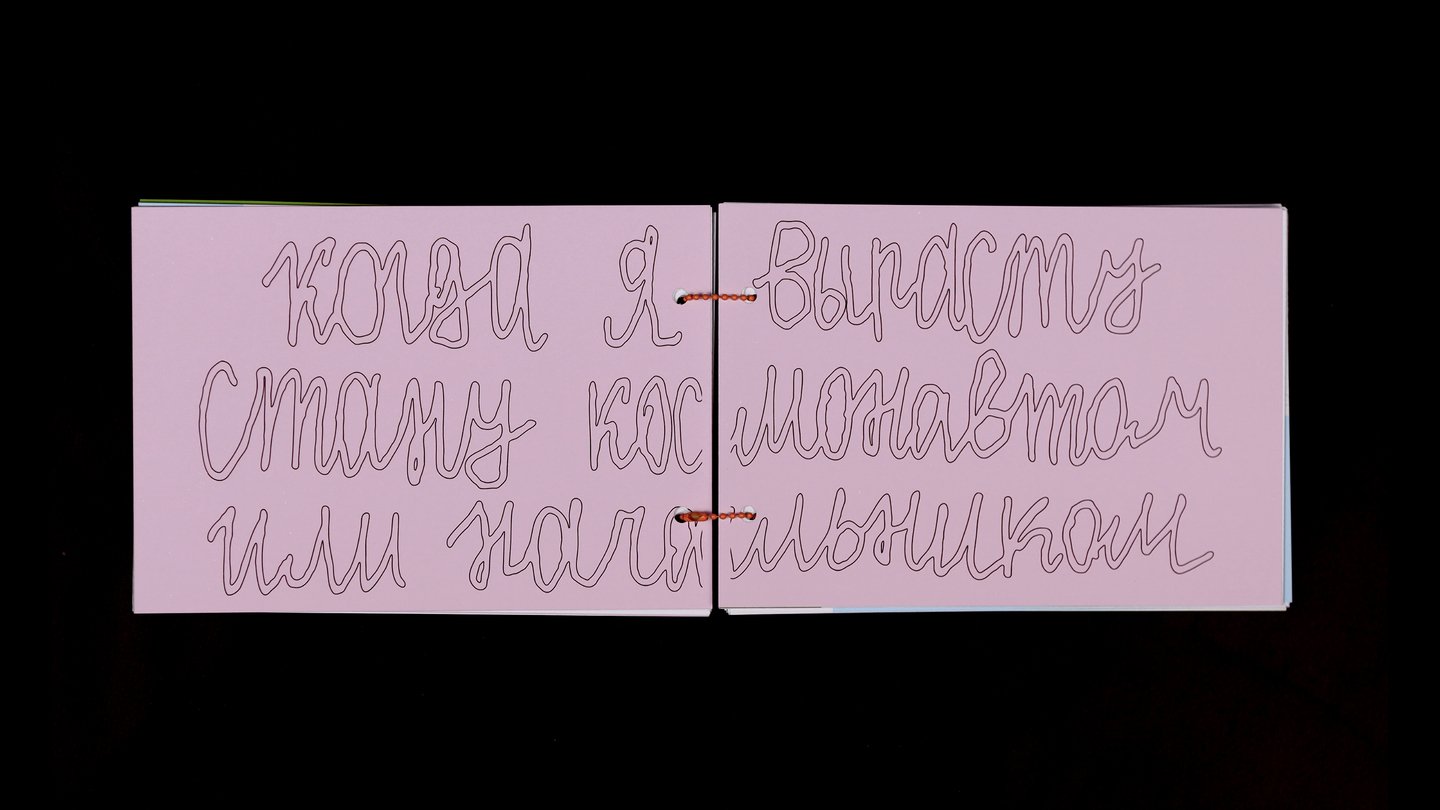 когда я вырасту
стану космонавтом
или начальником